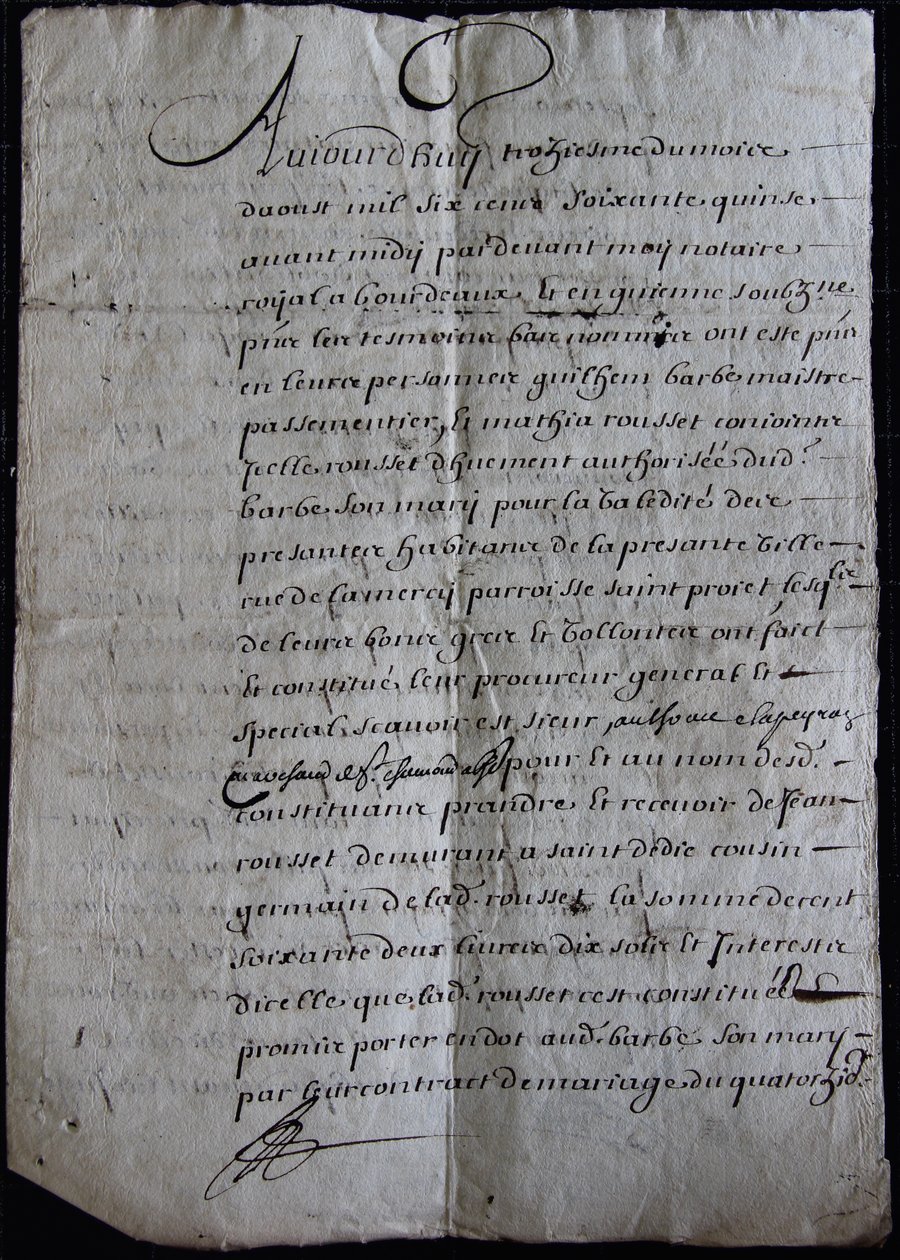 Auiourdhuy troziesme du moics
daoust mil six cens soixante quinse
auant midy par deuant moy notaire
royal a bourdeaux et en guienne soubz.ne
pnt les tesmoins bas nommés ont este pnt
en leurs personnes guilhem barbe maistre
passementier, et mathia rousset coniointz
Jcelle rousset dhuement authorisée dud.
barbe son mary pour la validité de ces
presantes habitans de la presante ville
rue de la mercy parroisse saint proiet lesq.lz
de leurs bons gres et vollontes ont faict
et constitué leur procureur general et
special scauoir est sieur anthoine
marchand de St. chamond pour et au nom desd.
constituans prandre et receuoir de Jean
rousset demurant a saint dedie cousin
germain de lad. rousset la somme de cent
soixante deux liures dix solz et Interestz
dicelle que lad. rousset cest constituée
promis porter en dot aud. barbe son mary
par leur contract de mariage du quatorzid.